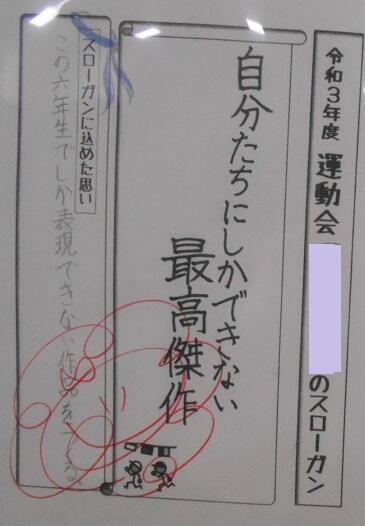 令和3年度 運動会 のスローガン
自分たちにしかできない
最高傑作
スローガンに込めた思い
この六年生でしか表現できない作品をつくる。